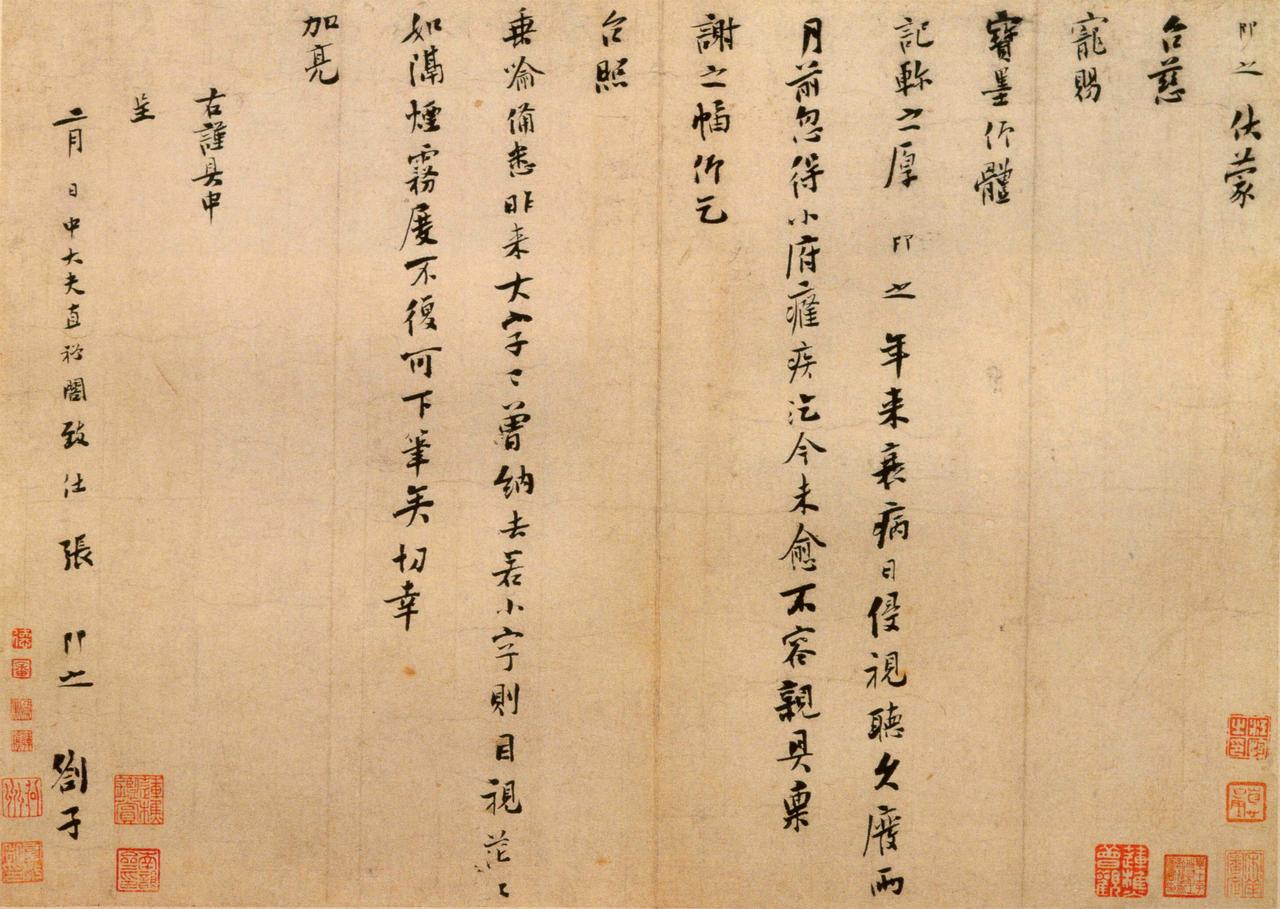 即之 伏蒙
台慈
寵賜
寶墨仰體
記存之厚 即之 年來衰病日侵視聽久廢兩
月前忽得小府癰疾迄今未愈不容親具稟
謝之幅仰乞
台照
垂喻備悉昨來大字〻曾納去若小字則目視茫〻
如隔煙霧度不復可下筆矣切幸
加亮
右謹具申
呈
二月 日中大夫直祕閣致仕 張 即之 劄子